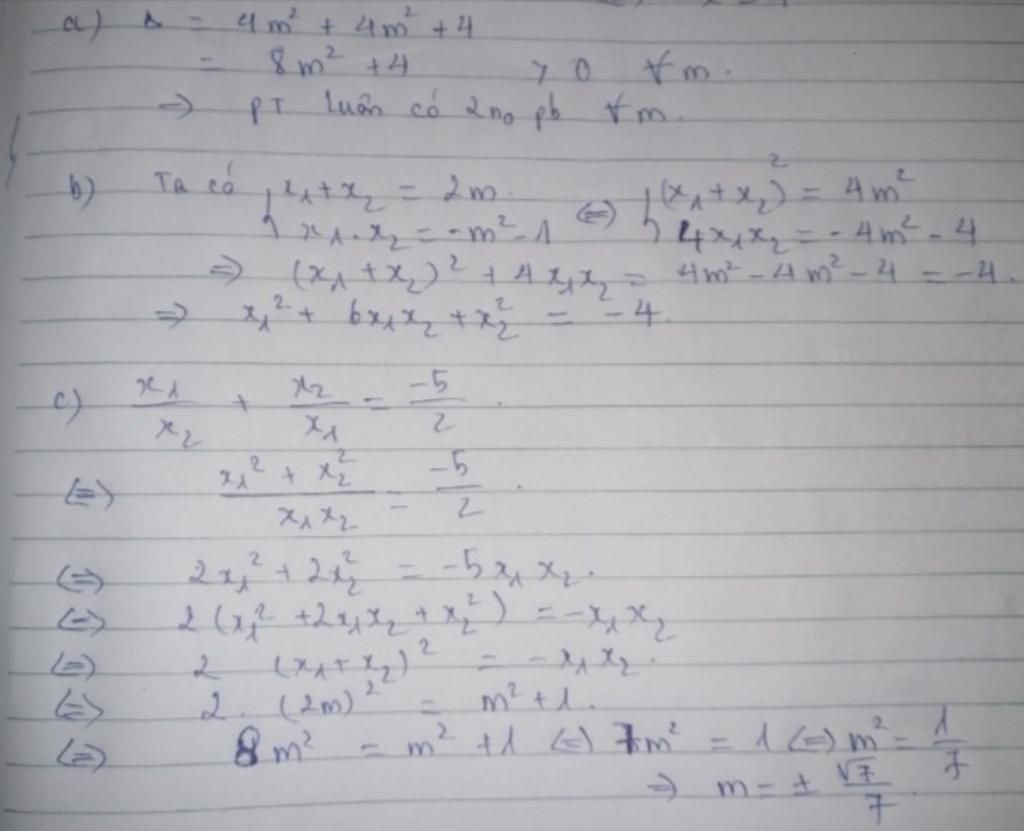 a) Δ = 4m² + 4m² + 4
= 8m² + 4 > 0 ∀m.
=> PT luôn có 2no pb ∀m.
b) Ta có { x₁ + x₂ = 2m. <=> { (x₁ + x₂)² = 4m²
x₁.x₂ = -m² - 1 4x₁x₂ = -4m² - 4
=> (x₁ + x₂)² + 4x₁x₂ = 4m² - 4m² - 4 = -4.
=> x₁² + 6x₁x₂ + x₂² = -4.
c) x₁/x₂ + x₂/x₁ = -5/2.
<=> (x₁² + x₂²)/(x₁x₂) = -5/2.
<=> 2x₁² + 2x₂² = -5x₁x₂.
<=> 2(x₁² + 2x₁x₂ + x₂²) = -x₁x₂
<=> 2 (x₁ + x₂)² = -x₁x₂.
<=> 2. (2m)² = m² + 1.
<=> 8m² = m² + 1 <=> 7m² = 1 <=> m² = 1/7
=> m = ± √7/7.